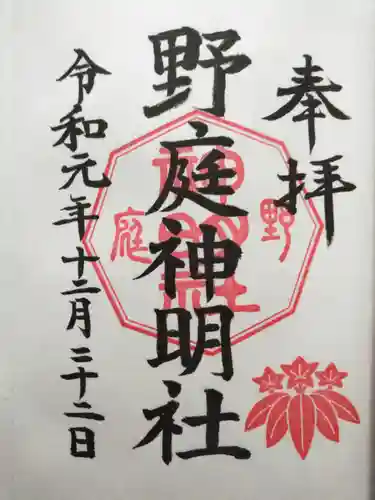 奉拝
野庭神明社
令和元年十二月二十二日
野庭
神明社